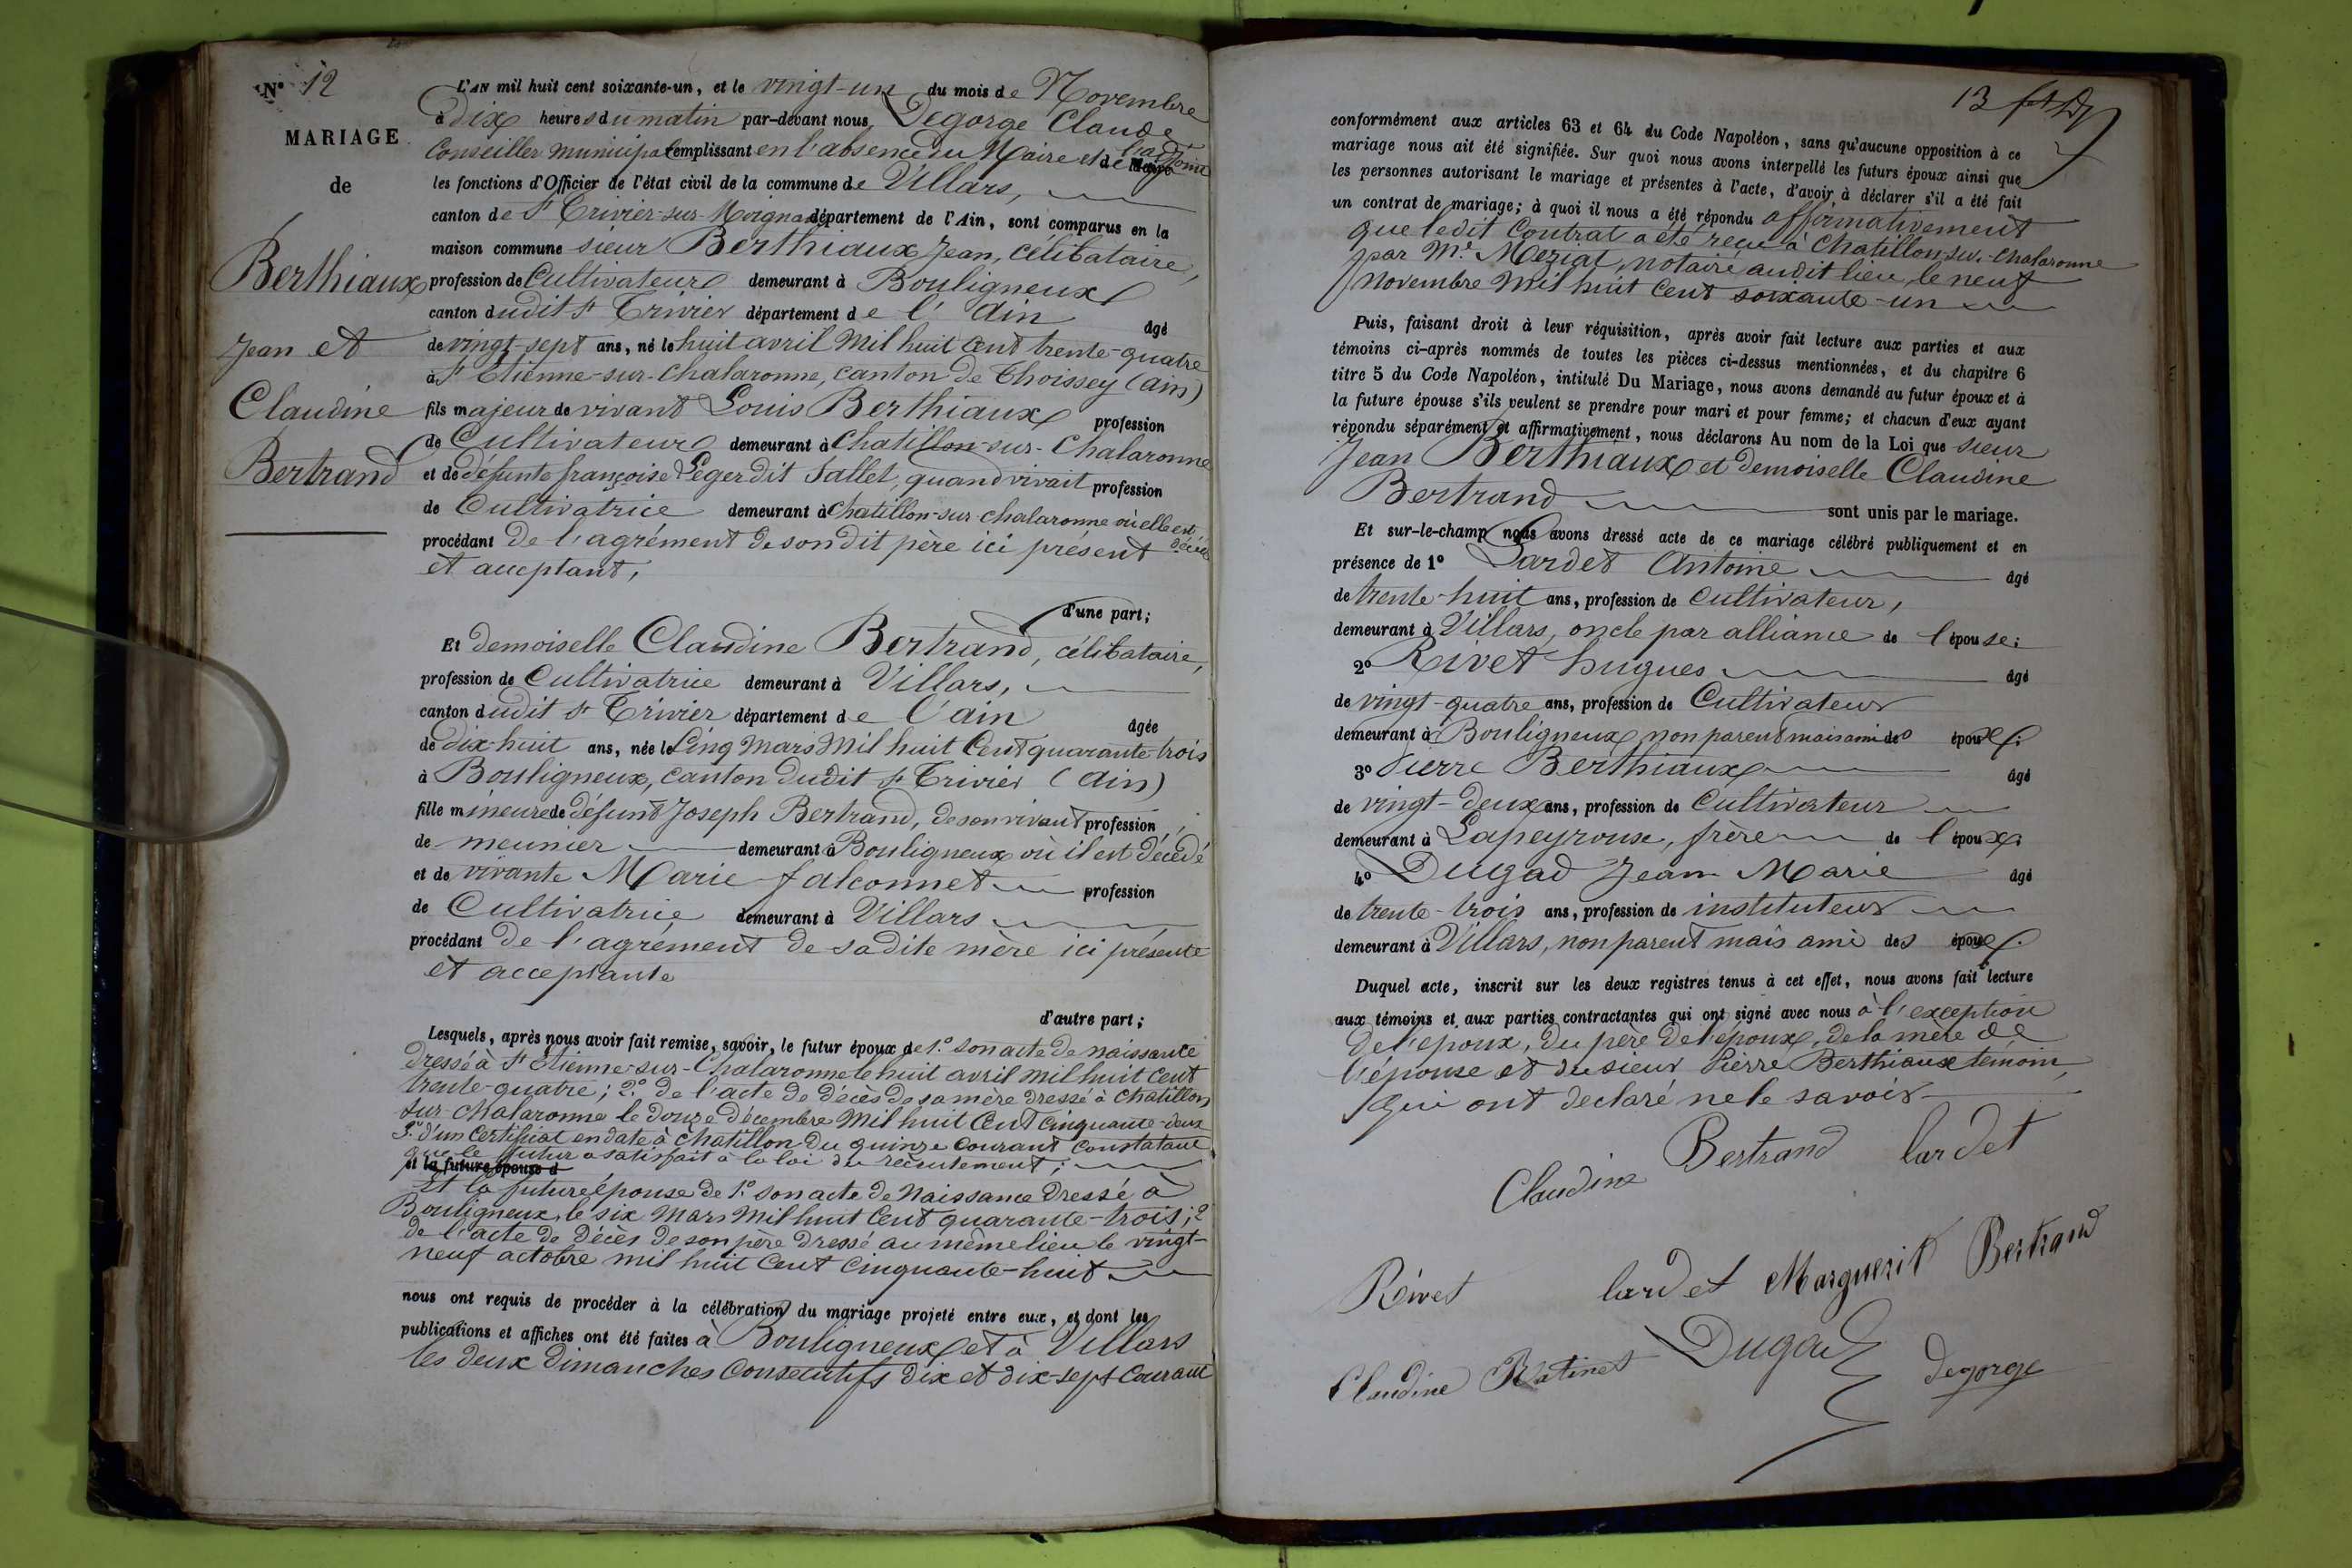 N° 12
MARIAGE
de
Berthiaux
Jean et
Claudine
Bertrand
L'AN mil huit cent soixante-un, et le vingt-un du mois de Novembre
à dix heures du matin par-devant nous Degorge Claude
Conseiller municipal remplissant en l'absence du Maire et de l'adjoint
les fonctions d'Officier de l'état civil de la commune de Villars,
canton de St Trivier-sur-Moignans département de l'Ain, sont comparus en la
maison commune sieur Berthiaux Jean, célibataire,
profession de Cultivateur demeurant à Bouligneux
canton dudit St Trivier département de l'Ain âgé
de vingt sept ans, né le huit avril mil huit cent trente-quatre
à St Etienne-sur-Chalaronne, canton de Thoissey (ain)
fils majeur de vivant Louis Berthiaux profession
de Cultivateur demeurant à Chatillon-sur-Chalaronne
et de défunte françoise Leger dit Sallet, quand vivait profession
de Cultivatrice demeurant à Chatillon-sur-chalaronne où elle est décédée
procédant de l'agrément de son dit père ici présent
et acceptant,
d'une part;
Et demoiselle Claudine Bertrand, célibataire,
profession de Cultivatrice demeurant à Villars,
canton dudit St Trivier département de l'ain âgée
de dix-huit ans, née le Cinq Mars Mil huit Cent quarante-trois
à Bouligneux, canton dudit St Trivier (ain)
fille mineure de défunt Joseph Bertrand, de son vivant profession
de meunier demeurant à Bouligneux où il est décédé
et de vivante Marie falconnet profession
de Cultivatrice demeurant à Villars
procédant de l'agrément de sadite mère ici présente
et acceptante
d'autre part;
Lesquels, après nous avoir fait remise, savoir, le futur époux de 1° son acte de naissance
dressé à St Etienne-sur-Chalaronne le huit avril mil huit cent
trente-quatre; 2° de l'acte de décès de sa mère dressé à Chatillon
sur-chalaronne le douze décembre mil huit Cent cinquante-deux
3° d'un certificat en date à Chatillon du quinze courant constatant
que le futur a satisfait à la loi du recrutement;
et la future épouse d
Et la future épouse de 1° son acte de Naissance dressé à
Bouligneux, le six Mars Mil huit Cent quarante-trois; 2°
de l'acte de décès de son père dressé au même lieu le vingt-
neuf octobre mil huit Cent Cinquante-huit
nous ont requis de procéder à la célébration du mariage projeté entre eux, et dont les
publications et affiches ont été faites à Bouligneux et à Villars
les deux dimanches consecutifs dix et dix-sept courant
13
conformément aux articles 63 et 64 du Code Napoléon, sans qu'aucune opposition à ce
mariage nous ait été signifiée. Sur quoi nous avons interpellé les futurs époux ainsi que
les personnes autorisant le mariage et présentes à l'acte, d'avoir à déclarer s'il a été fait
un contrat de mariage; à quoi il nous a été répondu affirmativement
que ledit Contrat a été reçu à Chatillon sur-chalaronne
par Me Meziat, notaire audit lieu le neuf
Novembre mil huit Cent soixante-un
Puis, faisant droit à leur réquisition, après avoir fait lecture aux parties et aux
témoins ci-après nommés de toutes les pièces ci-dessus mentionnées, et du chapitre 6
titre 5 du Code Napoléon, intitulé Du Mariage, nous avons demandé au futur époux et à
la future épouse s'ils veulent se prendre pour mari et pour femme; et chacun d'eux ayant
répondu séparément et affirmativement, nous déclarons Au nom de la Loi que sieur
Jean Berthiaux et demoiselle Claudine
Bertrand sont unis par le mariage.
Et sur-le-champ nous avons dressé acte de ce mariage célébré publiquement et en
présence de 1° Lardet Antoine âgé
de trente-huit ans, profession de cultivateur,
demeurant à Villars, oncle par alliance de l'épouse;
2° Rivet hugues âgé
de vingt-quatre ans, profession de Cultivateur
demeurant à Bouligneux non parent mais ami des époux;
3° Pierre Berthiaux âgé
de vingt-deux ans, profession de Cultivateur
demeurant à Lapeyrouse, frère de l'époux;
4° Dugad Jean Marie âgé
de trente-trois ans, profession de instituteur
demeurant à Villars, non parent mais ami des époux.
Duquel acte, inscrit sur les deux registres tenus à cet effet, nous avons fait lecture
aux témoins et aux parties contractantes qui ont signé avec nous à l'exception
de l'époux, du père de l'époux, de la mère de
l'épouse et du sieur Pierre Berthiaux témoin,
qui ont declaré ne le savoir
Claudine Bertrand lardet
Rivet lardet Marguerit Bertrand
Claudine Ratinet Dugad degorge